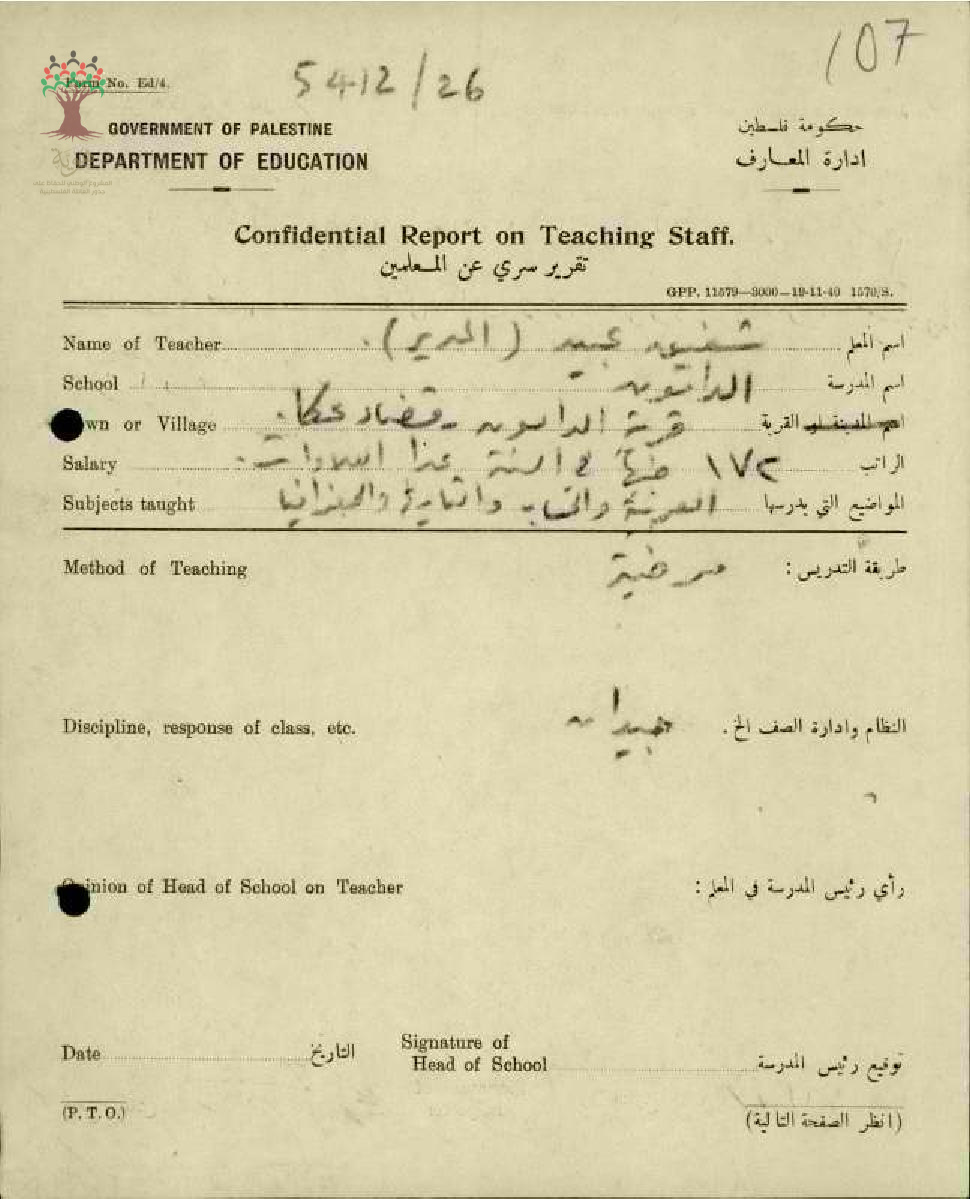 107
5412/26
Form No. Ed/4.
GOVERNMENT OF PALESTINE
حكومة فلسطين
DEPARTMENT OF EDUCATION
ادارة المعارف
Confidential Report on Teaching Staff.
تقرير سري عن المعلمين
GPP. 11579—3000—19-11-40 1570/S.
Name of Teacher شفيق عبيد (المدير). اسم المعلم
School الدامون اسم المدرسة
Town or Village قرية الدامون - قضاء عكا. اسم المدينة او القرية
Salary ١٧٢ جنيهاً في السنة عدا العلاوات. الراتب
Subjects taught العربية والحساب والتاريخ والجغرافيا المواضيع التي يدرسها
Method of Teaching مرضية طريقة التدريس :
Discipline, response of class, etc. جيدان النظام وادارة الصف الخ.
Opinion of Head of School on Teacher رأي رئيس المدرسة في المعلم :
Date التاريخ Signature of
Head of School توقيع رئيس المدرسة
(P. T. O.) (انظر الصفحة التالية)